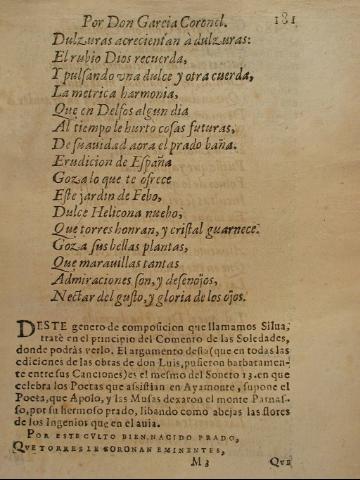 Por Don Garcia Coronel. 181
Dulzuras acrecientan à dulzuras:
El rubio Dios recuerda,
Y pulsando vna dulce y otra cuerda,
La metrica harmonia,
Que en Delfos algun dia
Al tiempo le hurto cosas futuras,
De suauidad aora el prado baña.
Erudicion de España
Goza lo que te ofrece
Este jardin de Febo,
Dulce Helicona nuebo,
Que torres honran, y cristal guarnece.
Goza sus bellas plantas,
Que marauillas tantas
Admiraciones son, y desenojos,
Nectar del gusto, y gloria de los ojos.
DESTE genero de composicion que llamamos Silua,
tratè en el principio del Comento de las Soledades,
donde podràs verlo. El argumento desta (que en todas las
ediciones de las obras de don Luis, pusieron barbaramen-
te entre sus Canciones) es el mesmo del Soneto 13. en que
celebra los Poetas que assistian en Ayamonte, supone el
Poeta, que Apolo, y las Musas dexaron el monte Parnas-
so, por su hermoso prado, libando como abejas las flores
de los Ingenios que en el auia.
POR ESTE CVLTO BIEN NACIDO PRADO,
QVE TORRES LE CORONAN EMINENTES,
M 3 Que